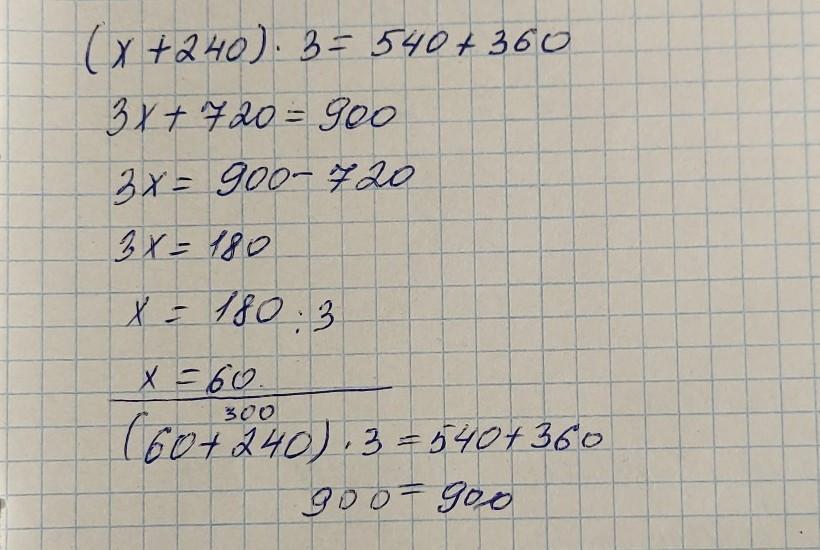 (x + 240) · 3 = 540 + 360
3x + 720 = 900
3x = 900 - 720
3x = 180
x = 180 : 3
x = 60.
300
(60 + 240) · 3 = 540 + 360
900 = 900